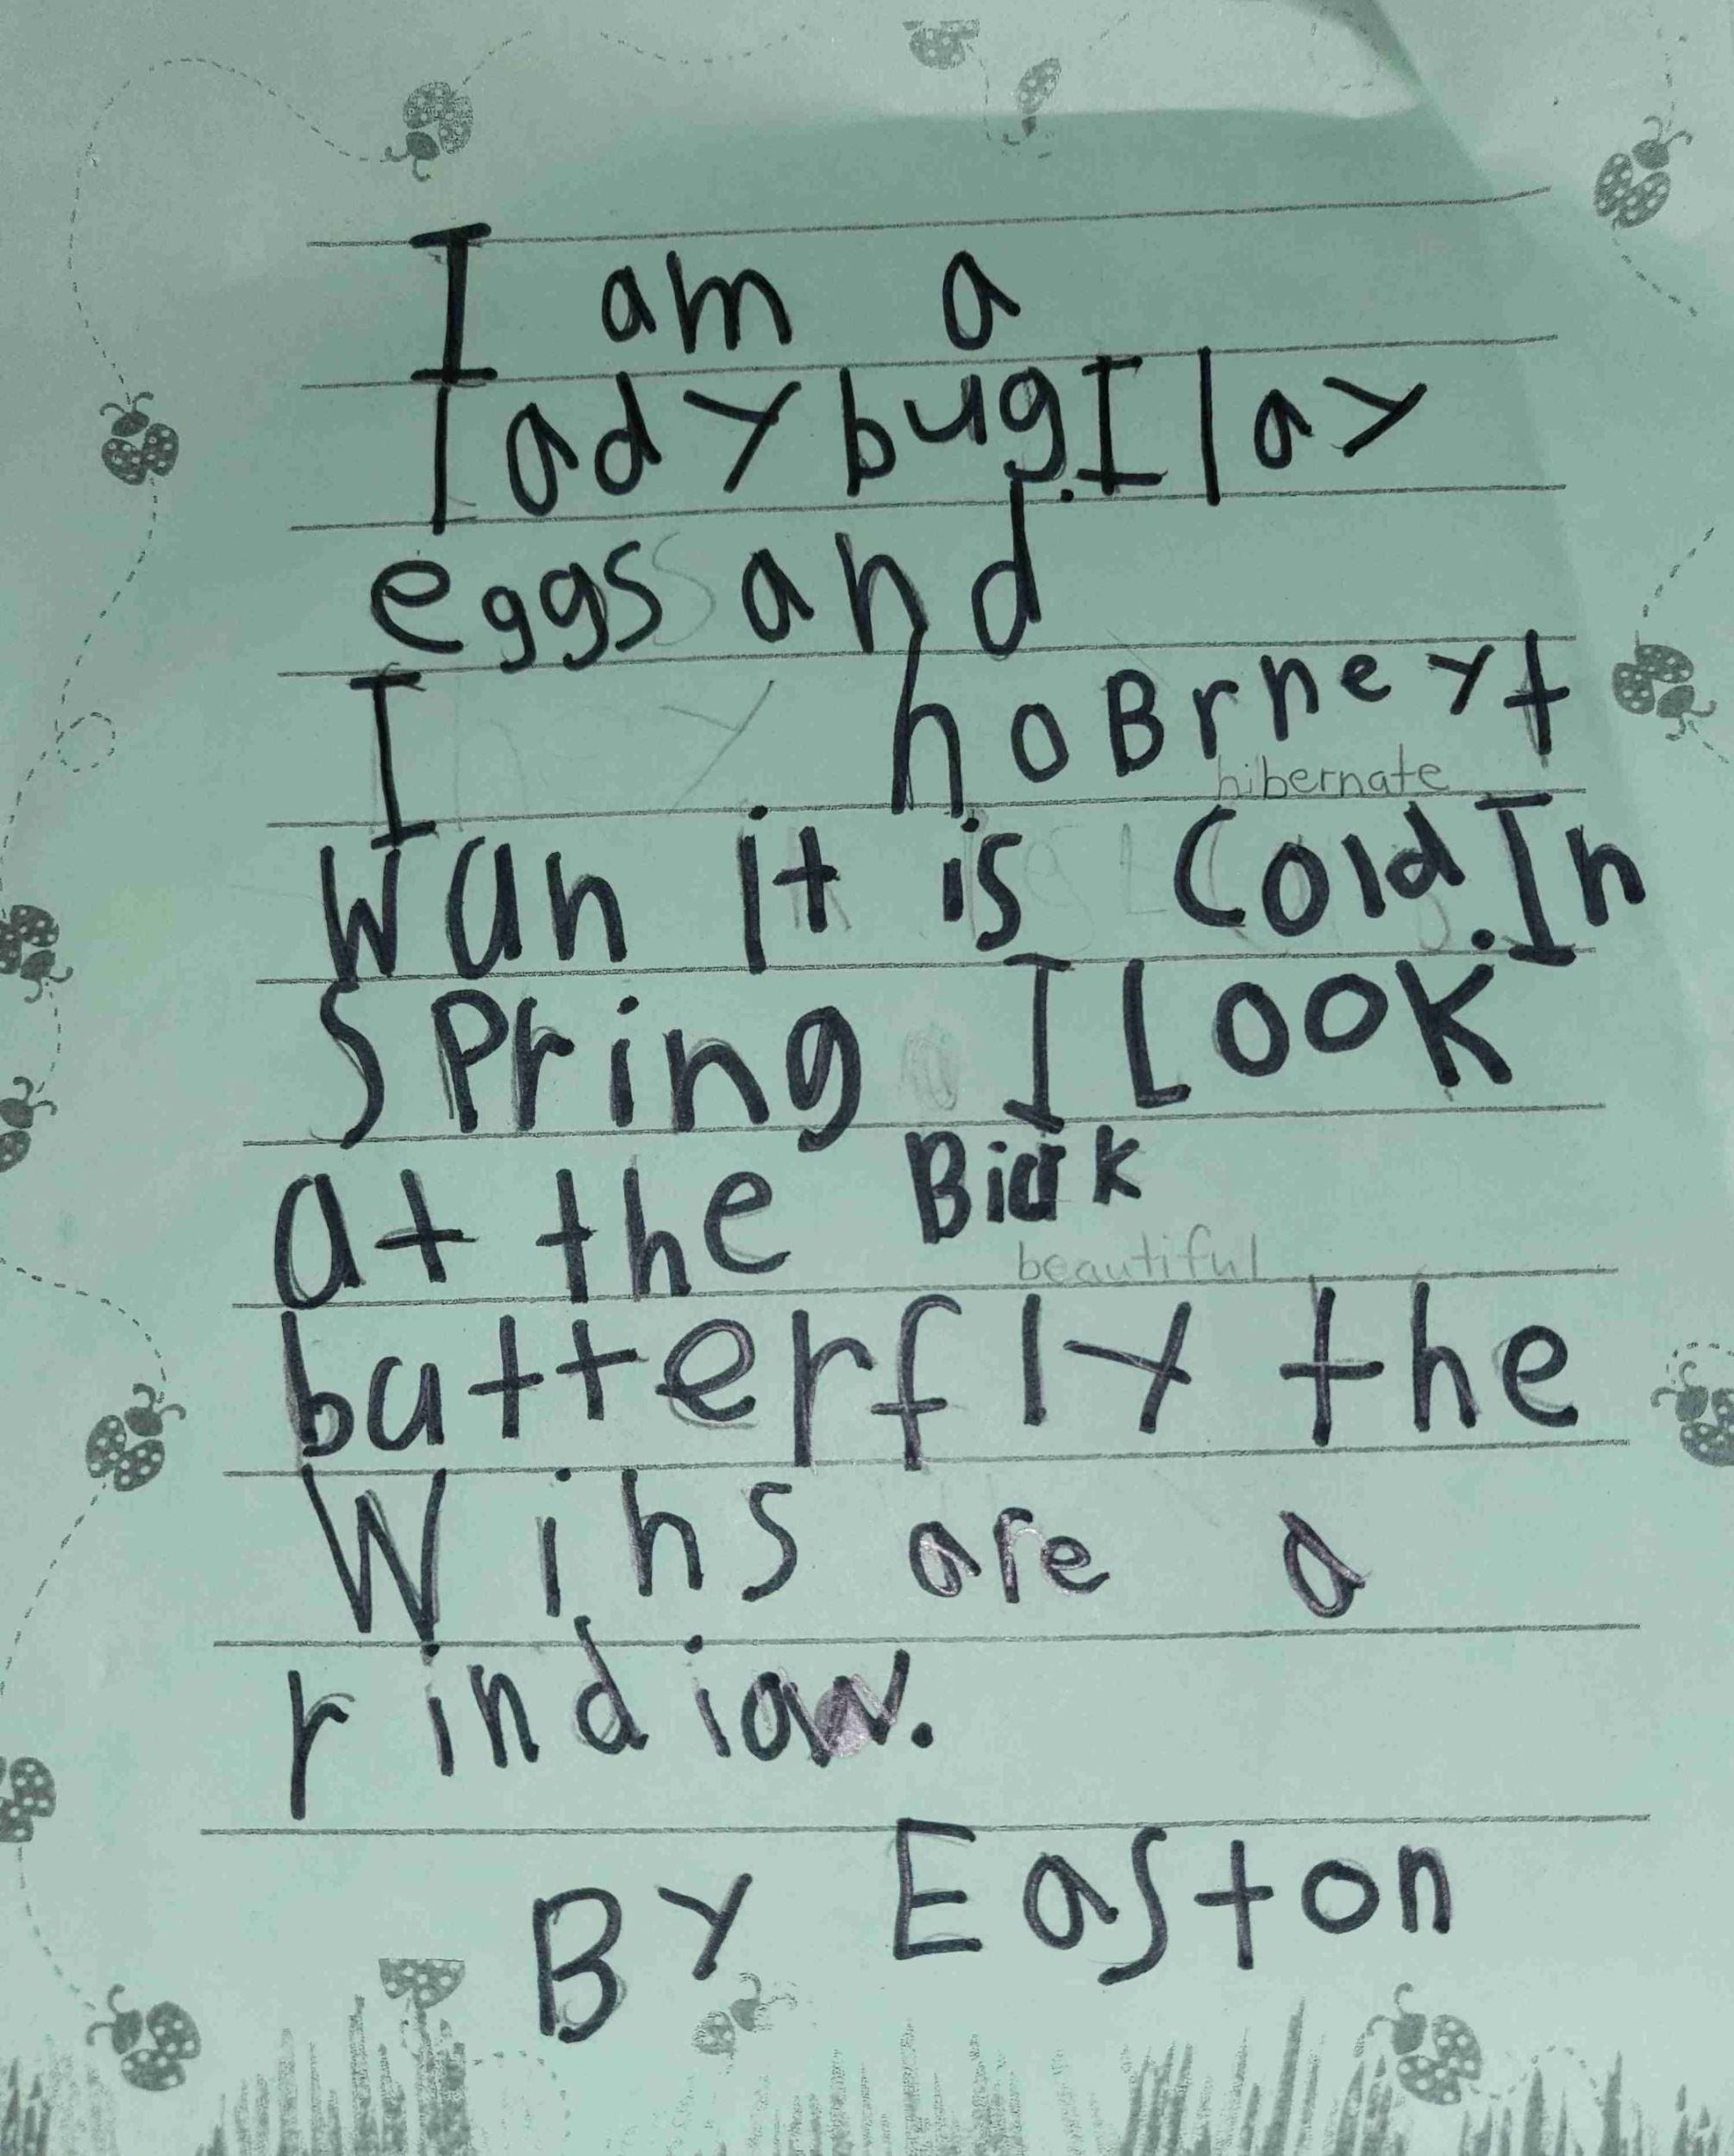 I am a
ladybug. I lay
eggs and
I hoBrneyt
hibernate
wan it is cold. In
spring I Look
at the Biuk
beautiful
butterfly the
Wihs are a
rindiow.
By Easton